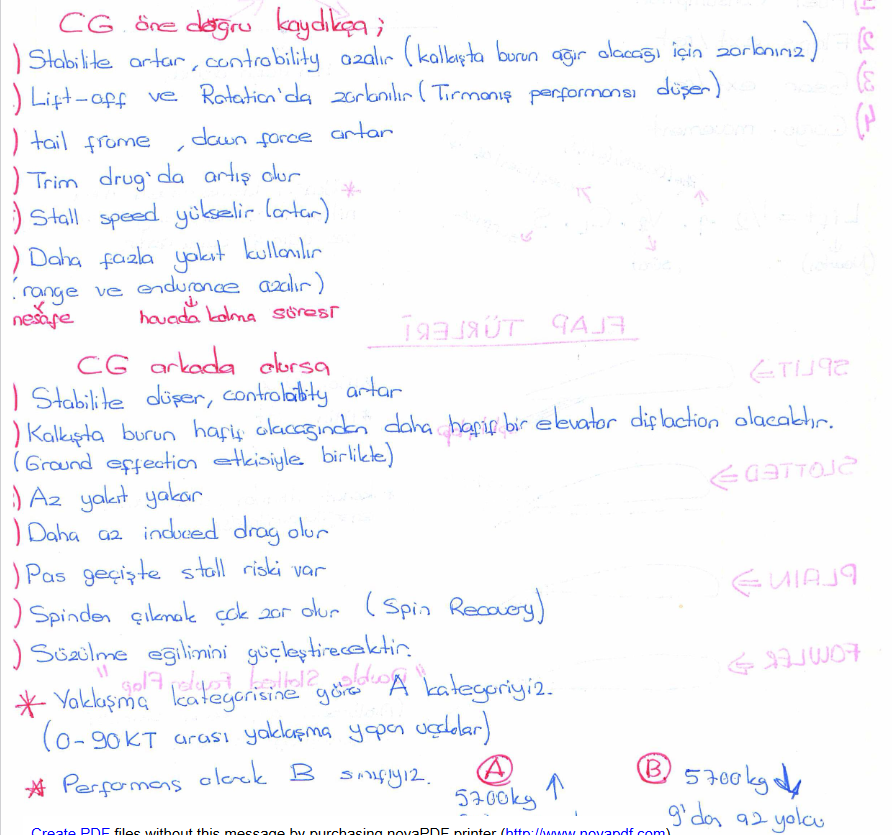 CG öne doğru kaydıkça ;
) Stabilite artar, contrability azalır (kalkışta burun ağır olacağı için zorlanırız)
) Lift-off ve Rotation'da zorlanılır (Tırmanış performansı düşer)
) tail frome, down force artar
) Trim drug'da artış olur
) Stall speed yükselir (artar)
) Daha fazla yakıt kullanılır
(range ve endurance azalır)
mesafe havada kalma süresi
FLAP TÜRLERİ
CG arkada olursa
SPLIT ⇒
) Stabilite düşer, controlability artar
) Kalkışta burun hafif olacağından daha hafif bir elevator diflaction olacaktır.
(Ground effection etkisiyle birlikte)
SLOTTED ⇒
) Az yakıt yakar
) Daha az induced drag olur
) Pas geçişte stall riski var
PLAIN ⇒
) Spinden çıkmak çok zor olur (Spin Recovery)
) Süzülme eğilimini güçleştirecektir.
FOWLER ⇒
"Double Slotted Fowler Flap"
* Yaklaşma kategorisine göre A kategoriyiz.
(0-90KT arası yaklaşma yapan uçaklar)
* Performans olarak B sınıfıyız. A 5700kg ↑ B 5700kg ↓
9'dan az yolcu
Create PDF files without this message by purchasing novaPDF printer (http://www.novapdf.com)